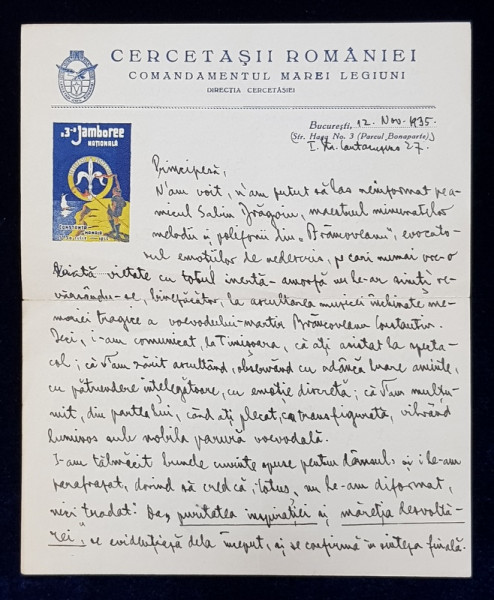 CERCETAȘII ROMÂNIEI
COMANDAMENTUL MAREI LEGIUNI
DIRECȚIA CERCETĂȘIEI
București, 12. Nov. 1935.
(Str. Haga No. 3 (Parcul Bonaparte).)
I. Gr. Cantacuzino 27.
a 3-a Jamboree
NAȚIONALĂ
CONSTANȚA
MAMAIA
Principesă,
N'am voit, n'am putut să las neinformat pe a-
micul Sabin Drăgoiu, maestrul minunatelor
melodii și polefonii din "Brâncoveanu", evocato-
rul emoțiilor de nedescris, pe cari numai vre-o
ființă vietate cu totul inertă - amorfă nu le-ar simți re-
vărsându-se, binefăcător, la ascultarea muzicei închinate me-
moriei tragice a voevodului-martir Brâncoveanu Constantin.
Deci, i-am comunicat, la Timișoara, că ați asistat la specta-
col; că V'am zărit ascultând, observând cu adâncă luare aminte,
cu pătrundere înțelegătoare, cu emoție discretă; că V'am mulțu-
mit, din partea lui, când ați plecat, ca transfigurată, vibrând
luminos sub nobila parură voevodală.
I-am tălmăcit bunele cuvinte spuse pentru dânsul și i le-am
parafrazat, dorind să cred că, totuș, nu le-am diformat,
nici trădat: Da, puritatea inspirației și măreția desvoltă-
rei, se evidențiază dela început, și se confirmă în sinteza finală.